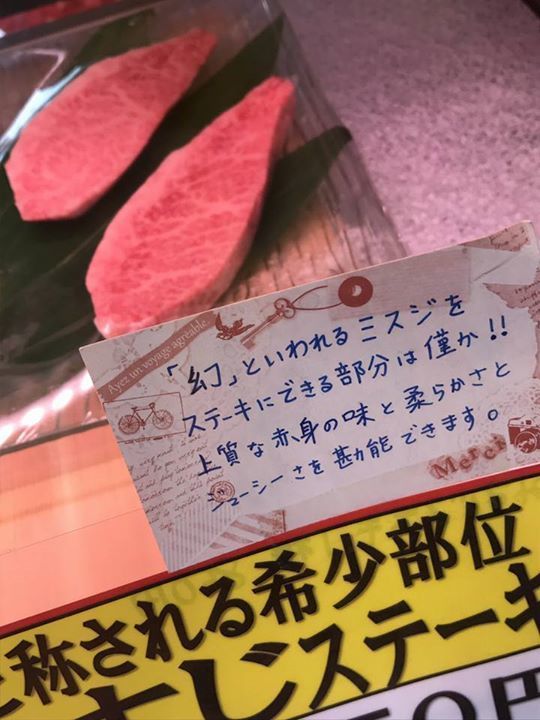 Ayez un voyage agreable
「幻」といわれるミスジを
ステーキにできる部分は僅か!!
上質な赤身の味と柔らかさと
ジューシーさを堪能できます。
Merci
と称される希少部位
すじステーキ
50円